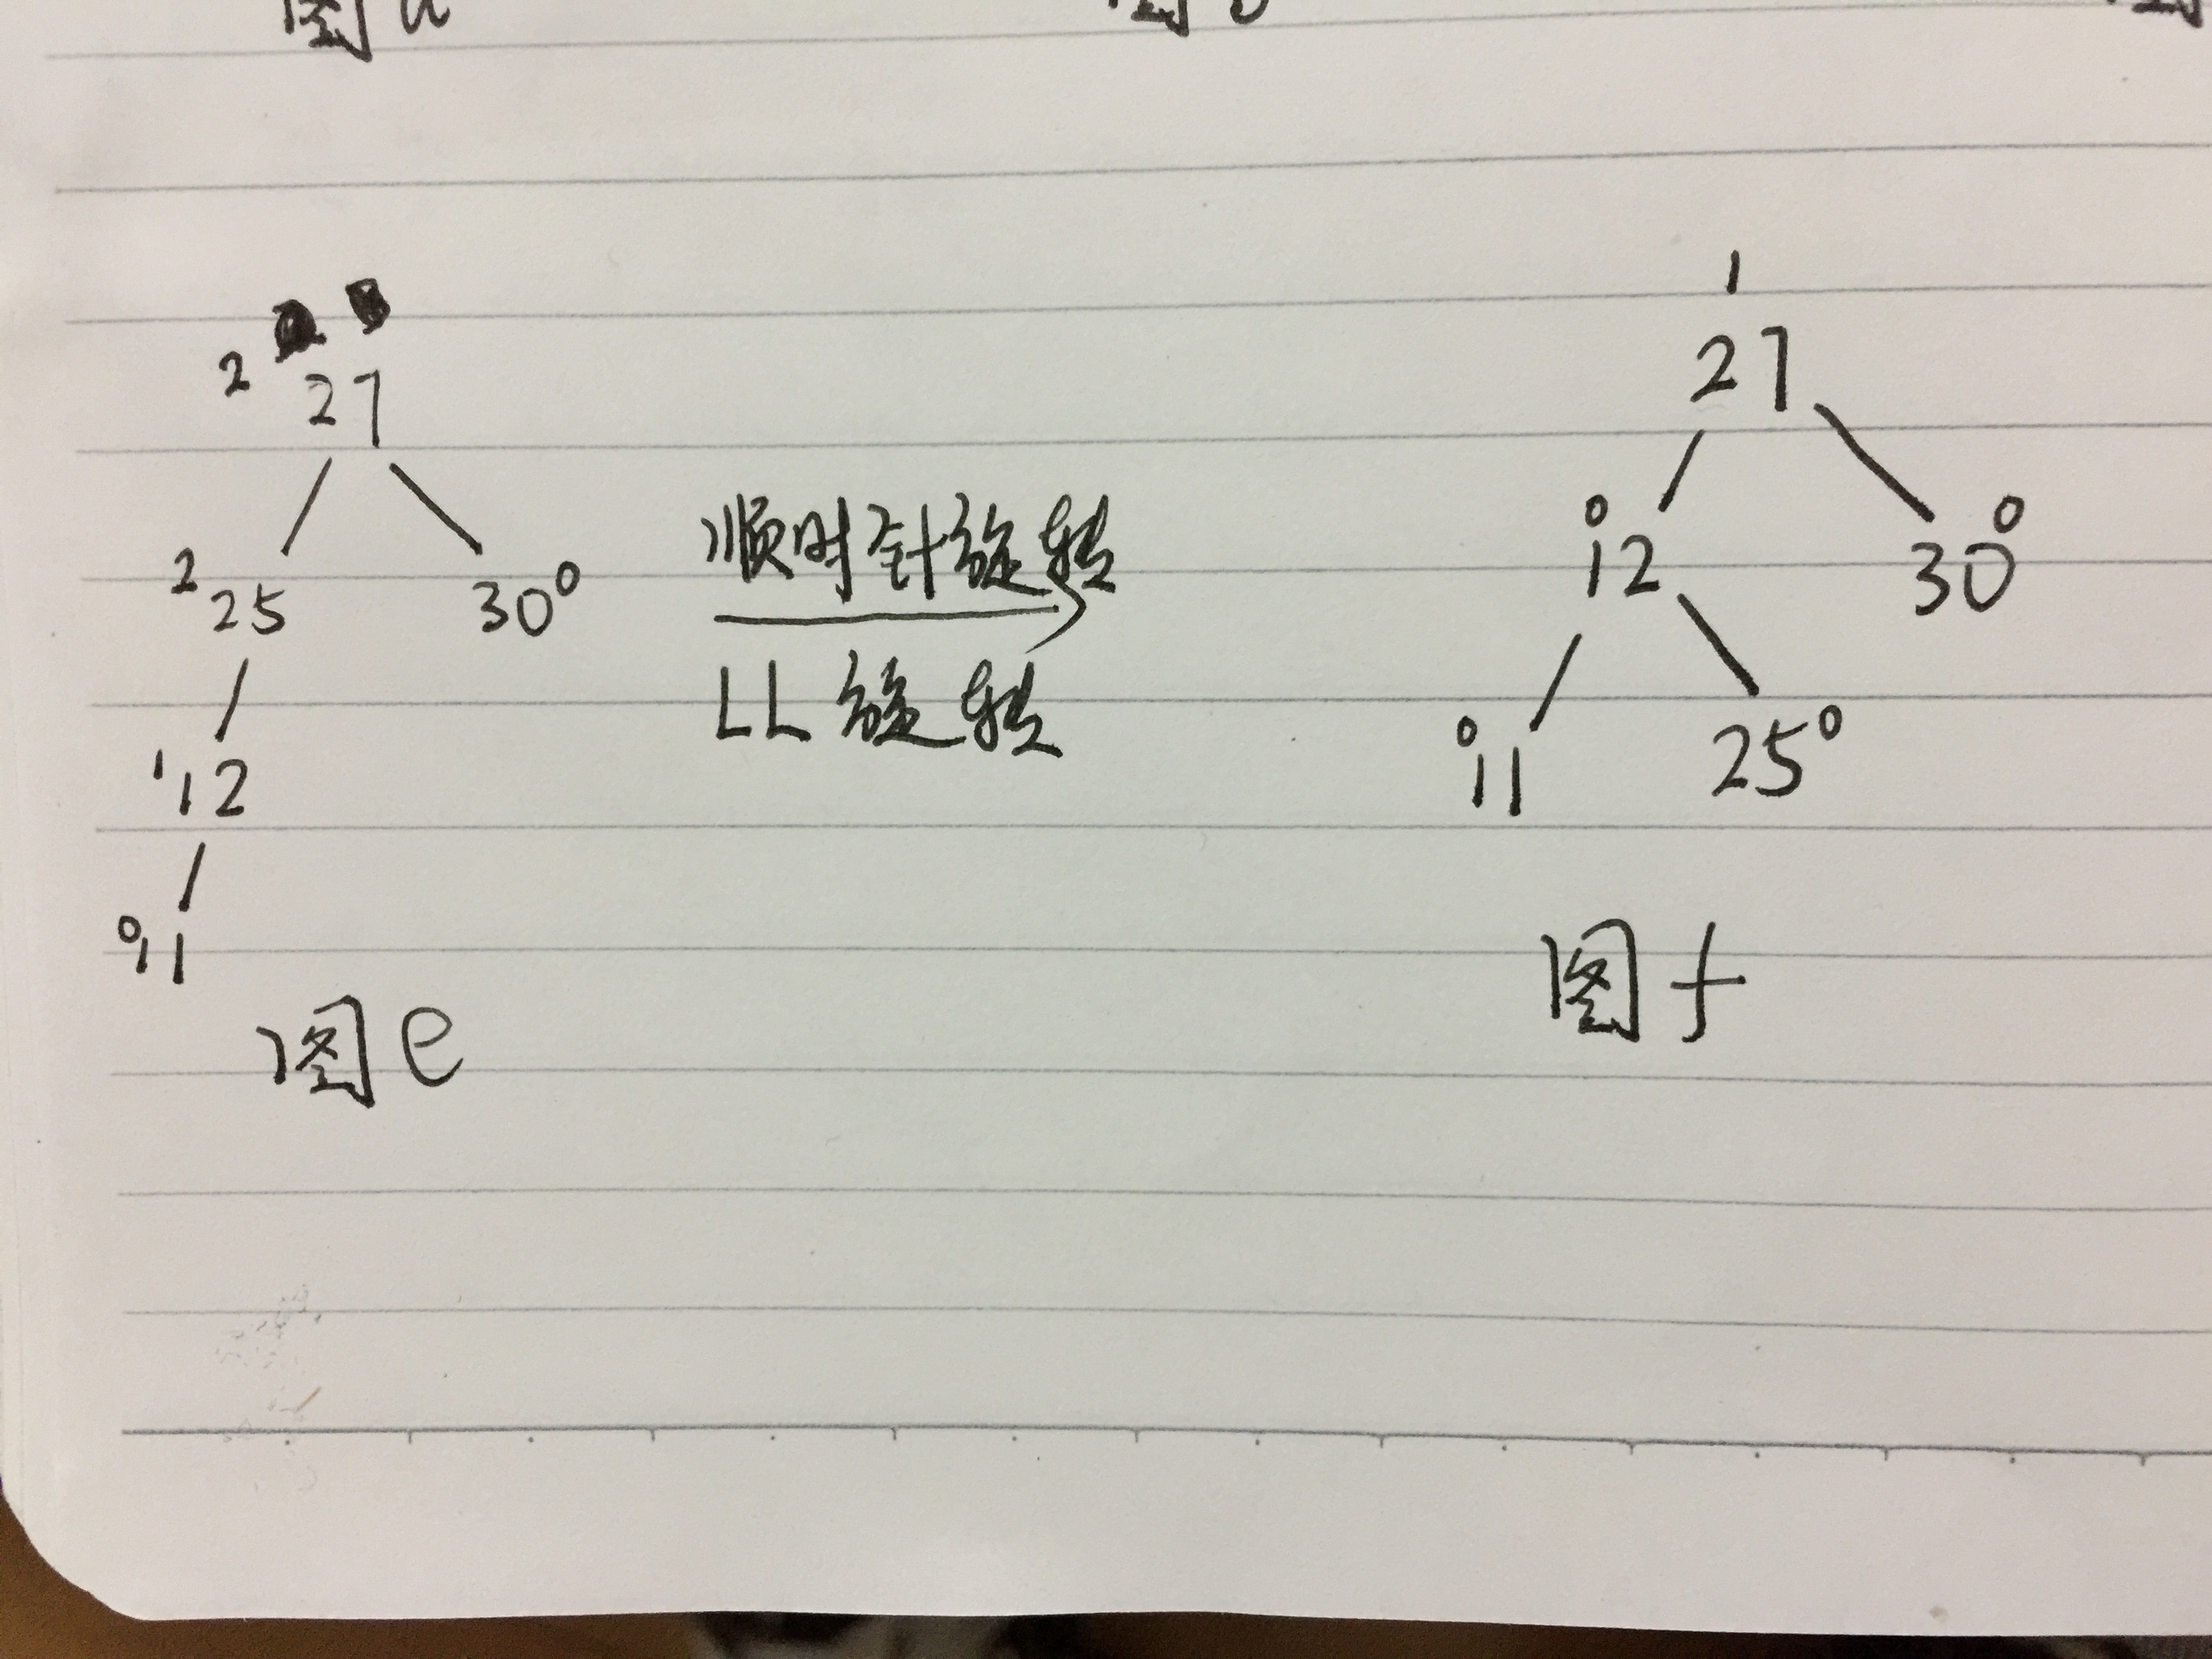 图a
图b
图
2
27
2
25
30
0
1
12
0
11
图e
顺时针旋转
LL旋转
1
27
0
12
30
0
0
11
25
0
图f